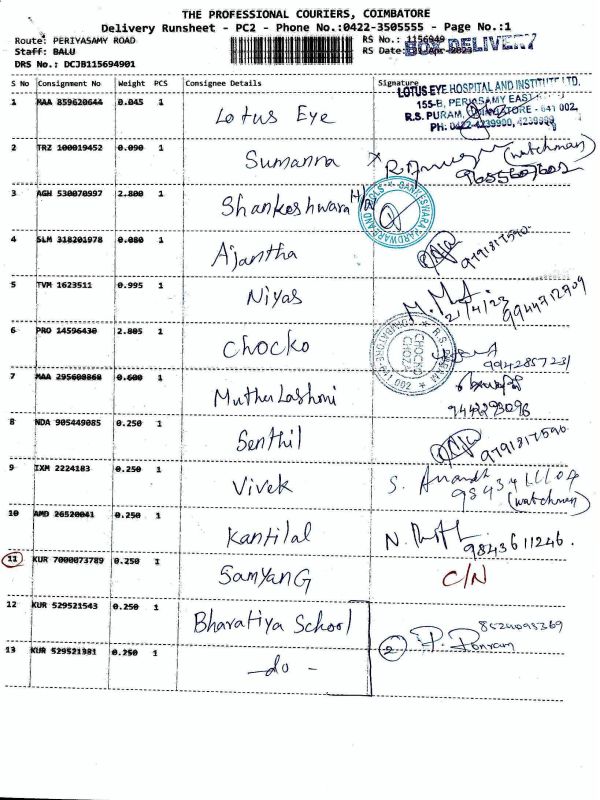 THE PROFESSIONAL COURIERS, COIMBATORE
Delivery Runsheet - PC2 - Phone No.:0422-3505555 - Page No.:1
Route: PERIYASAMY ROAD RS No.: 1156949
Staff: BALU RS Date: Apr-2023 BOX DELIVERY
DRS No.: DCJB115694901
S No Consignment No Weight PCS Consignee Details Signature
1 MAA 859620644 0.045 1 Lotus Eye
LOTUS EYE HOSPITAL AND INSTITUTE LTD.
155-B, PERIASAMY EAST
R.S. PURAM, COIMBATORE - 641 002,
PH: 0422-4239900, 4239999
2 TRZ 100019452 0.090 1 Sumanna (watchman)
9655607602
3 AGH 530070997 2.800 1 Shankeshwara H/w
SANKESWARA HARDWARE AND
4 SLM 318201978 0.080 1 Ajantha 9791817590
5 TVM 1623511 0.995 1 Niyas 21/4/23 9944712909
6 PRO 14596430 2.805 1 Chocko 9942857231
CHOCKO CHOZA R.S. PURAM COIMBATORE 641 002
7 MAA 295600868 0.600 1 Muthu Lashmi
9442293096
8 NDA 905449085 0.250 1 Senthil 9791817590
9 IXM 2224183 0.250 1 Vivek S. Anandh
(watchman)
10 AMD 26520041 0.250 1 Kantilal 9843611246.
11 KUR 7000073789 0.250 1 SamyanG C/N
12 KUR 529521543 0.250 1 Bharatiya School 8524093369
13 KUR 529521381 0.250 1 -do- 2 P. Ponram